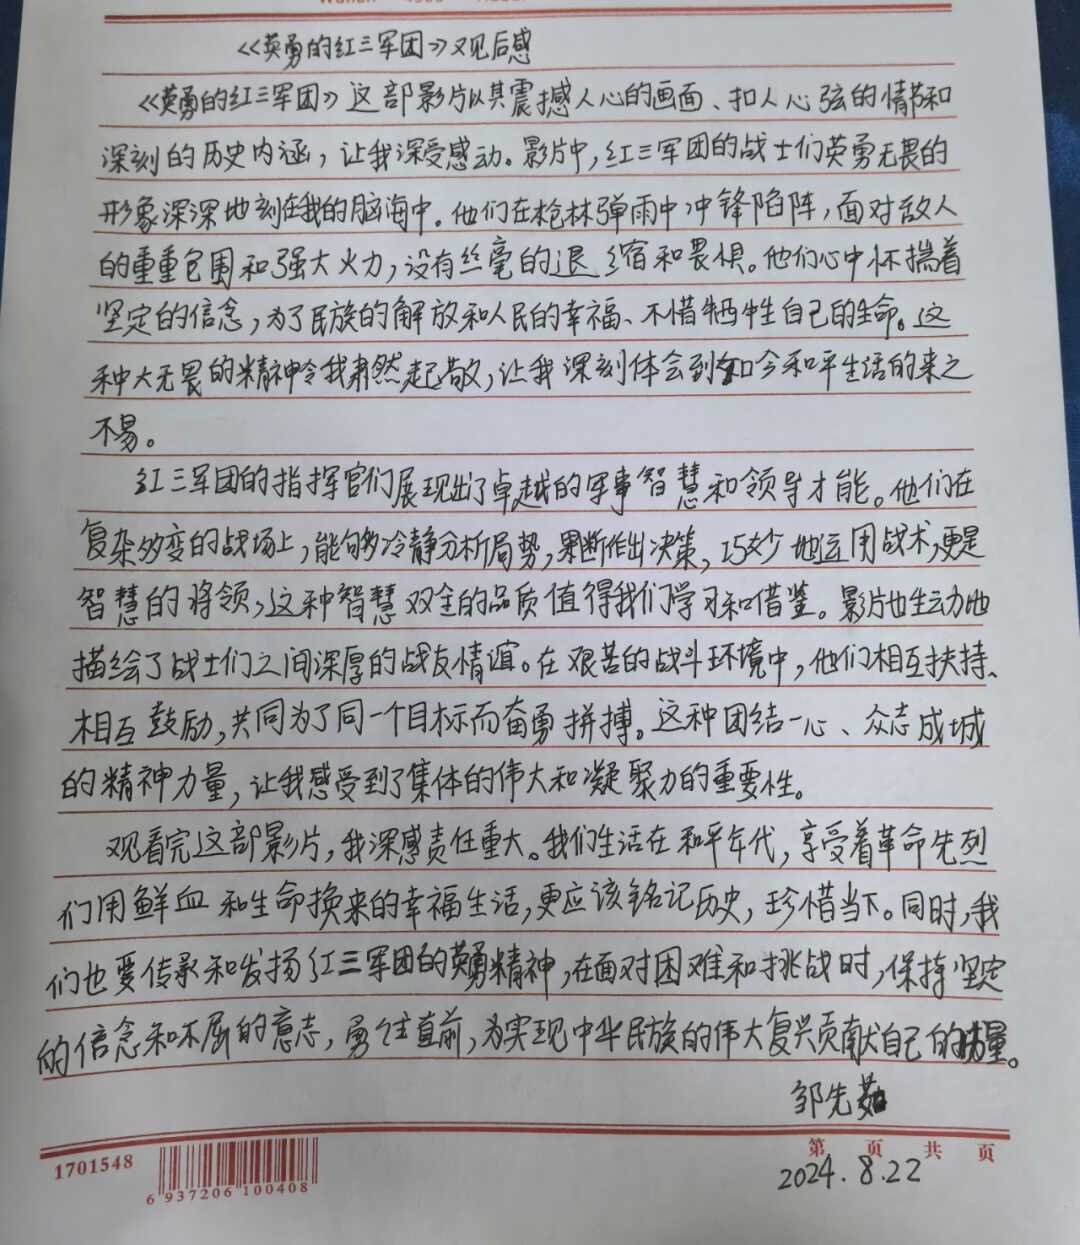 《英勇的红三军团》观后感
《英勇的红三军团》这部影片以其震撼人心的画面、扣人心弦的情节和
深刻的历史内涵，让我深受感动。影片中，红三军团的战士们英勇无畏的
形象深深地刻在我的脑海中。他们在枪林弹雨中冲锋陷阵，面对敌人
的重重包围和强大火力，没有丝毫的退缩和畏惧。他们心中怀揣着
坚定的信念，为了民族的解放和人民的幸福、不惜牺牲自己的生命。这
种大无畏的精神令我肃然起敬，让我深刻体会到如今和平生活的来之
不易。
红三军团的指挥官们展现出了卓越的军事智慧和领导才能。他们在
复杂多变的战场上，能够冷静分析局势，果断作出决策，巧妙地运用战术，更是
智慧的将领，这种智慧双全的品质值得我们学习和借鉴。影片也生动地
描绘了战士们之间深厚的战友情谊。在艰苦的战斗环境中，他们相互扶持、
相互鼓励，共同为了同一个目标而奋勇拼搏。这种团结一心、众志成城
的精神力量，让我感受到了集体的伟大和凝聚力的重要性。
观看完这部影片，我深感责任重大。我们生活在和平年代，享受着革命先烈
们用鲜血和生命换来的幸福生活，更应该铭记历史，珍惜当下。同时，我
们也要传承和发扬红三军团的英勇精神，在面对困难和挑战时，保持坚定
的信念和不屈的意志，勇往直前，为实现中华民族的伟大复兴贡献自己的力量。
邹先茹
1701548
6 937206 100408
第 页 共 页
2024.8.22